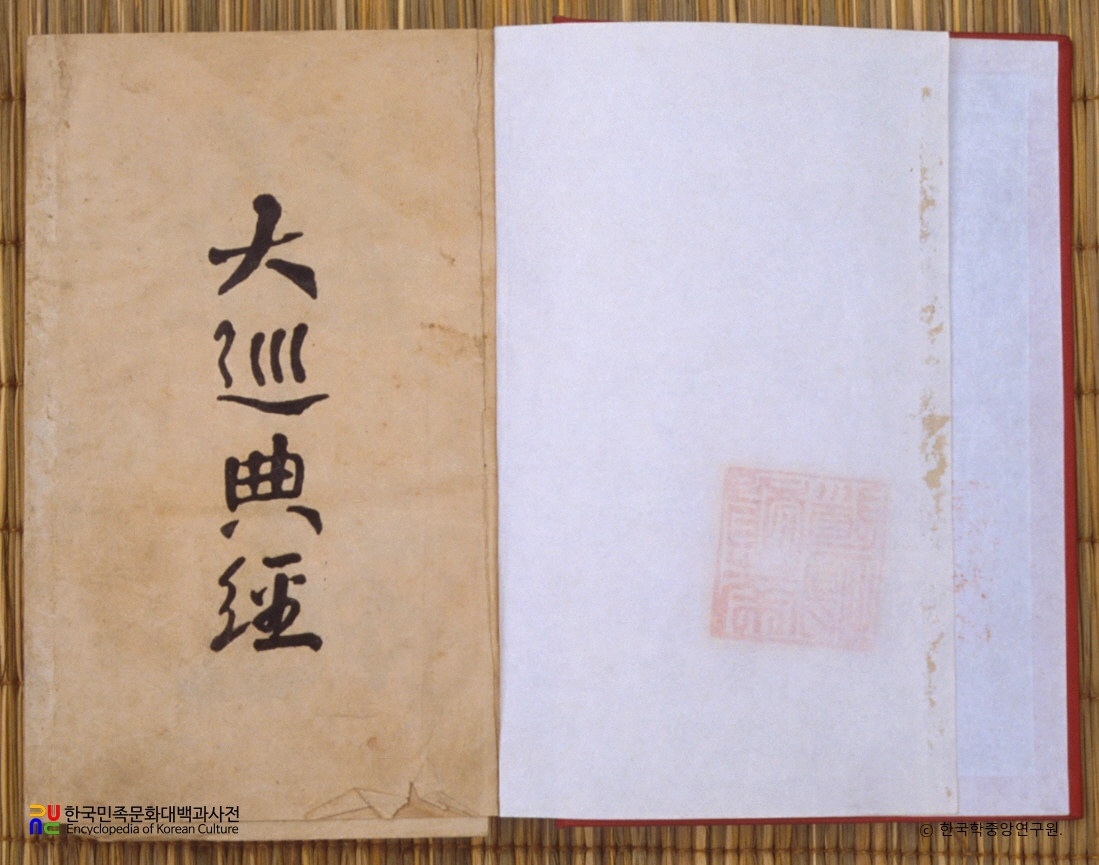 大巡典經
한국민족문화대백과사전
Encyclopedia of Korean Culture
© 한국학중앙연구원.